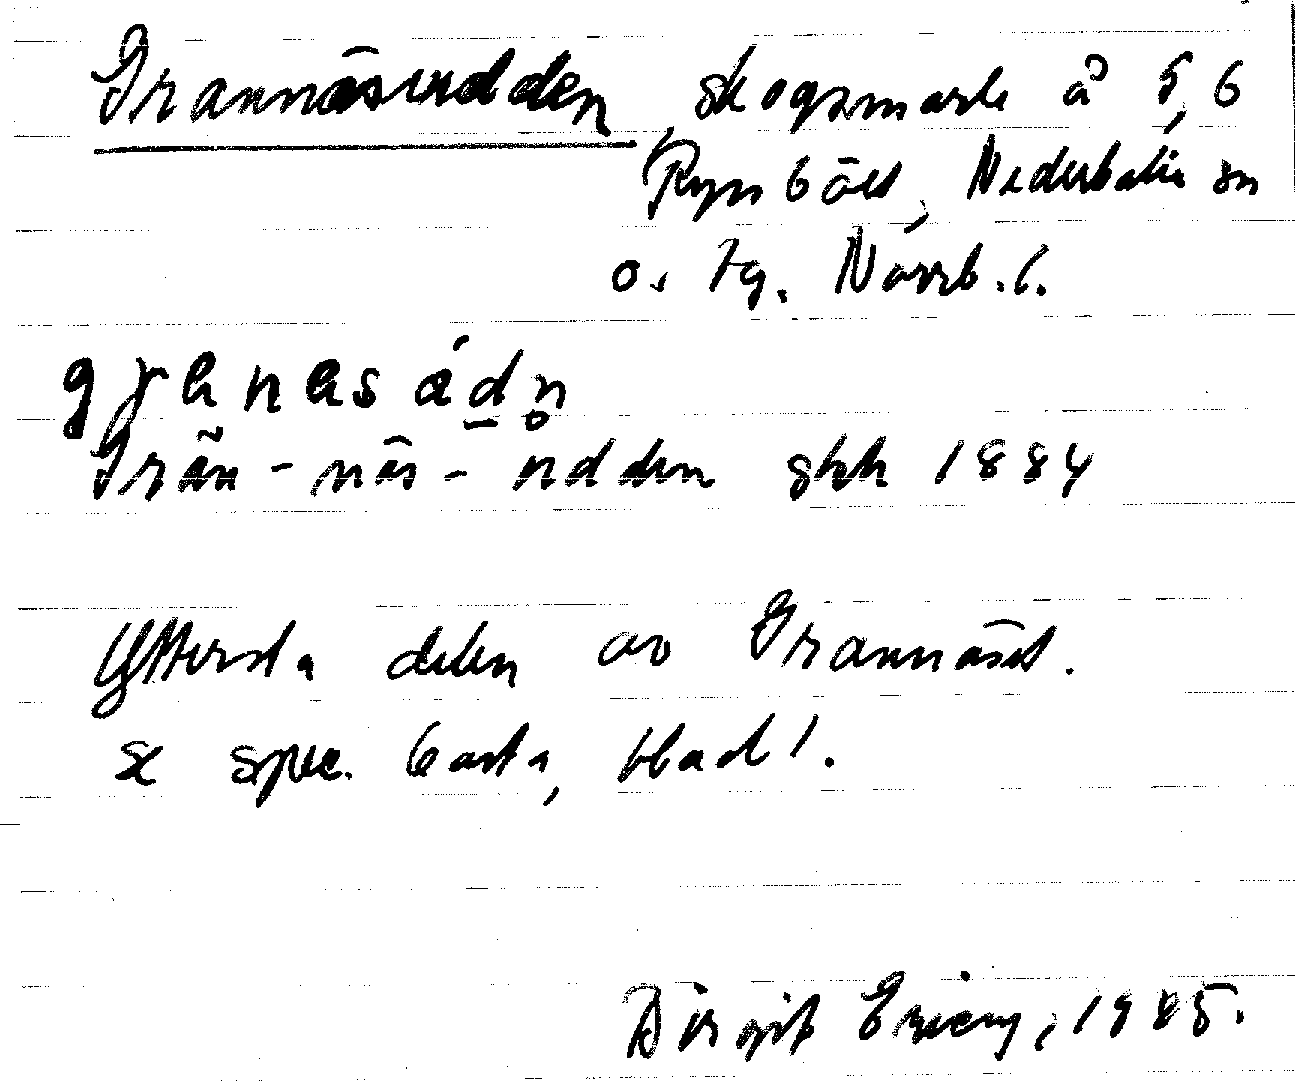 Grannäsudden, skogsmark å 5, 6
Rynbäck, Nederkalix sn
o. tg. Norrb. l.
granäsädn
Grän-näs-üdden ghk 1884
Yttersta delen av Grannäset.
se spec. karta, blad 1.
Birgit 1985.